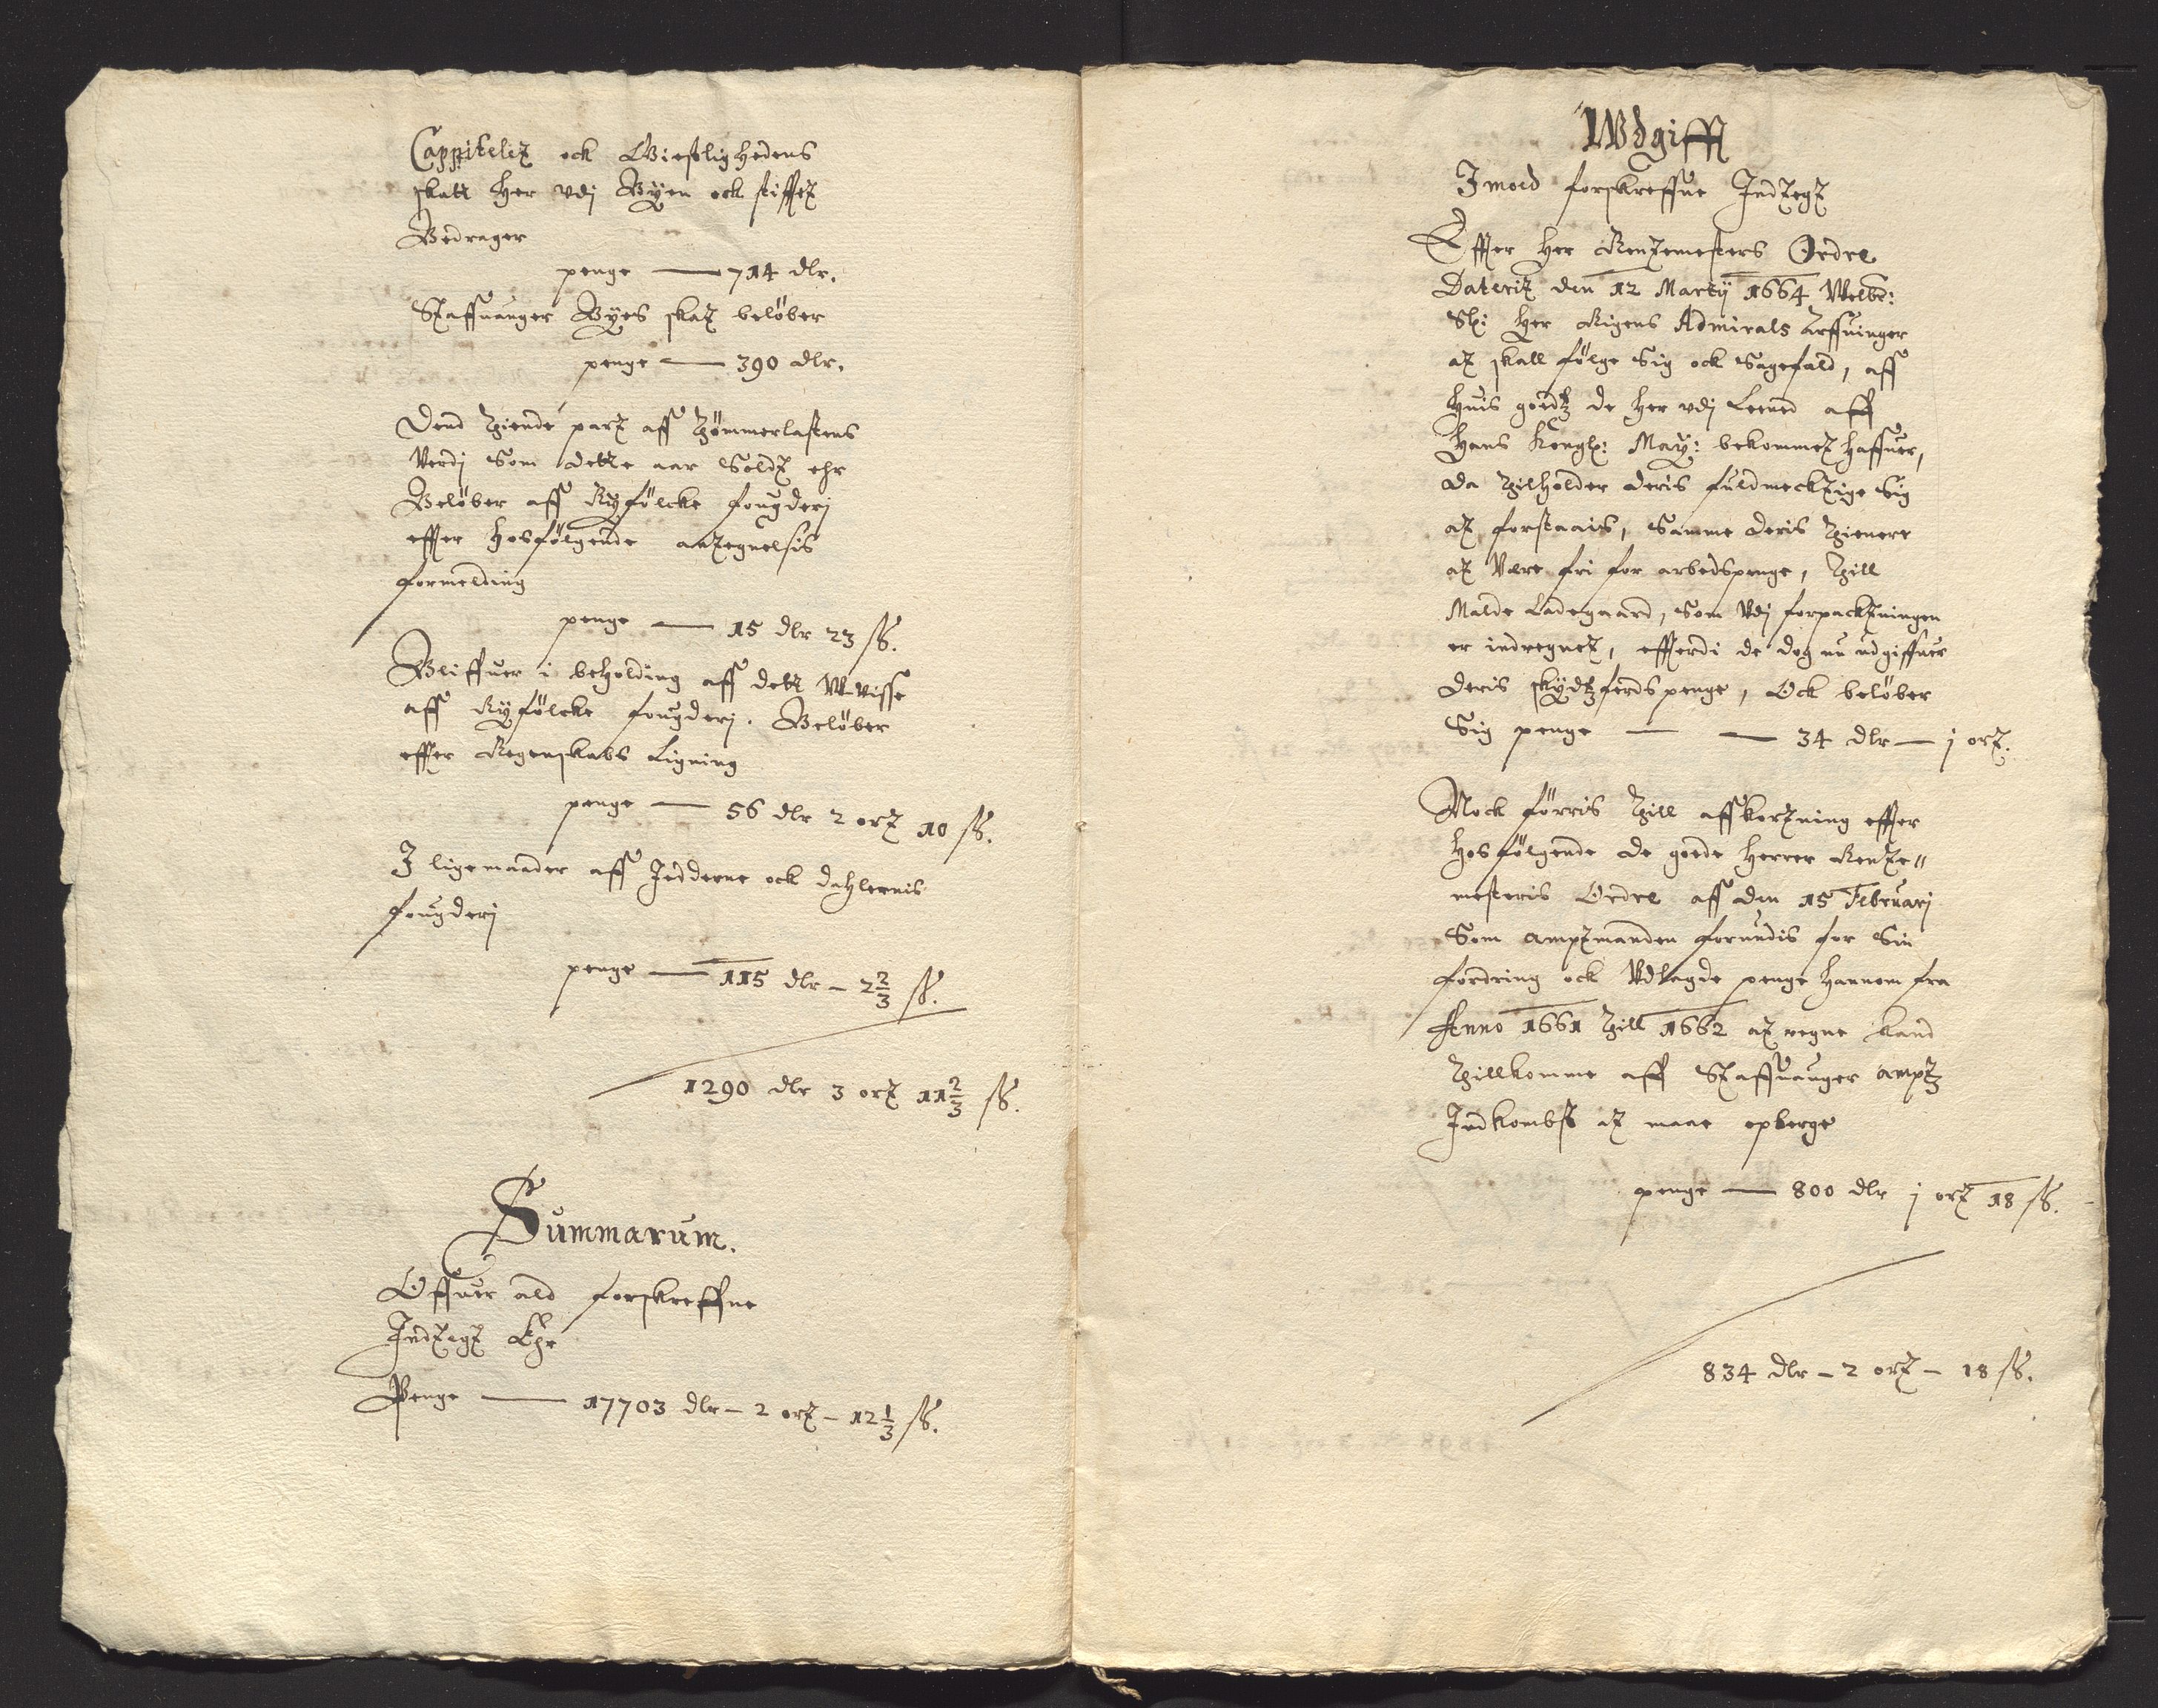 Cappitelet ock Giestlighedens
skatt her vdj Byen ock stifftet
Bedrager
penge — 714 dlr.
Staffuanger Byes skat belöber
penge — 390 dlr.
Dend tiende part aff tömmerlastens
Verdj Som dette aar Soldt ehr
Belöber aff Ryfölcke fougderj
effter hosfölgende antegnelsis
formelding
penge — 15 dlr 23 ß.
Bliffuer i beholding aff dett W-visse
aff Ryfölcke fougderj. Belöber
effter Regenskabs Ligning
penge — 56 dlr 2 ort 10 ß.
I ligemaader aff Jedderne ock dahlernis
fougderj
penge — 115 dlr – 2 2/3 ß.
1290 dlr 3 ort 11 2/3 ß.
Summarum.
Offuer ald forskreffne
Indtegt Ehr
Penge — 17703 dlr – 2 ort – 12 1/3 ß.
Wdgifft
Imod forskreffne Indtegt
Effter her Rentemesters Ordre
Daterit den 12 Martij 1664 Welb:
Sl: her Rigens Admirals Arffuinger
at skall fölge Sig ock Sagefald, aff
huis goedtz de her vdj Leened aff
Hans Kongl: May: bekommet haffuer,
da tilholder deris fuldmechtige Sig
at forstaais, Samme deris tienere
at Være fri for arbedspenge, till
Malde Ladegaard, Som Vdj forpachtningen
er indregnet, efftterdi de dog nu udgiffuer
deris skydtzferds penge, Ock belöber
Sig penge — — 34 dlr — j ort.
Nock förris till affkortning effter
hosfölgende de goede herrer Rente=
mesteris Ordre aff den 15 Februarj
Som amptmanden forundis for Sin
fordring ock Vdlagde penge hannom fra
Anno 1661 till 1662 at regne kand
tillkomme aff Staffuanger amptz
Indkombst at maae opberge
penge — 800 dlr j ort 18 ß.
834 dlr – 2 ort – 18 ß.